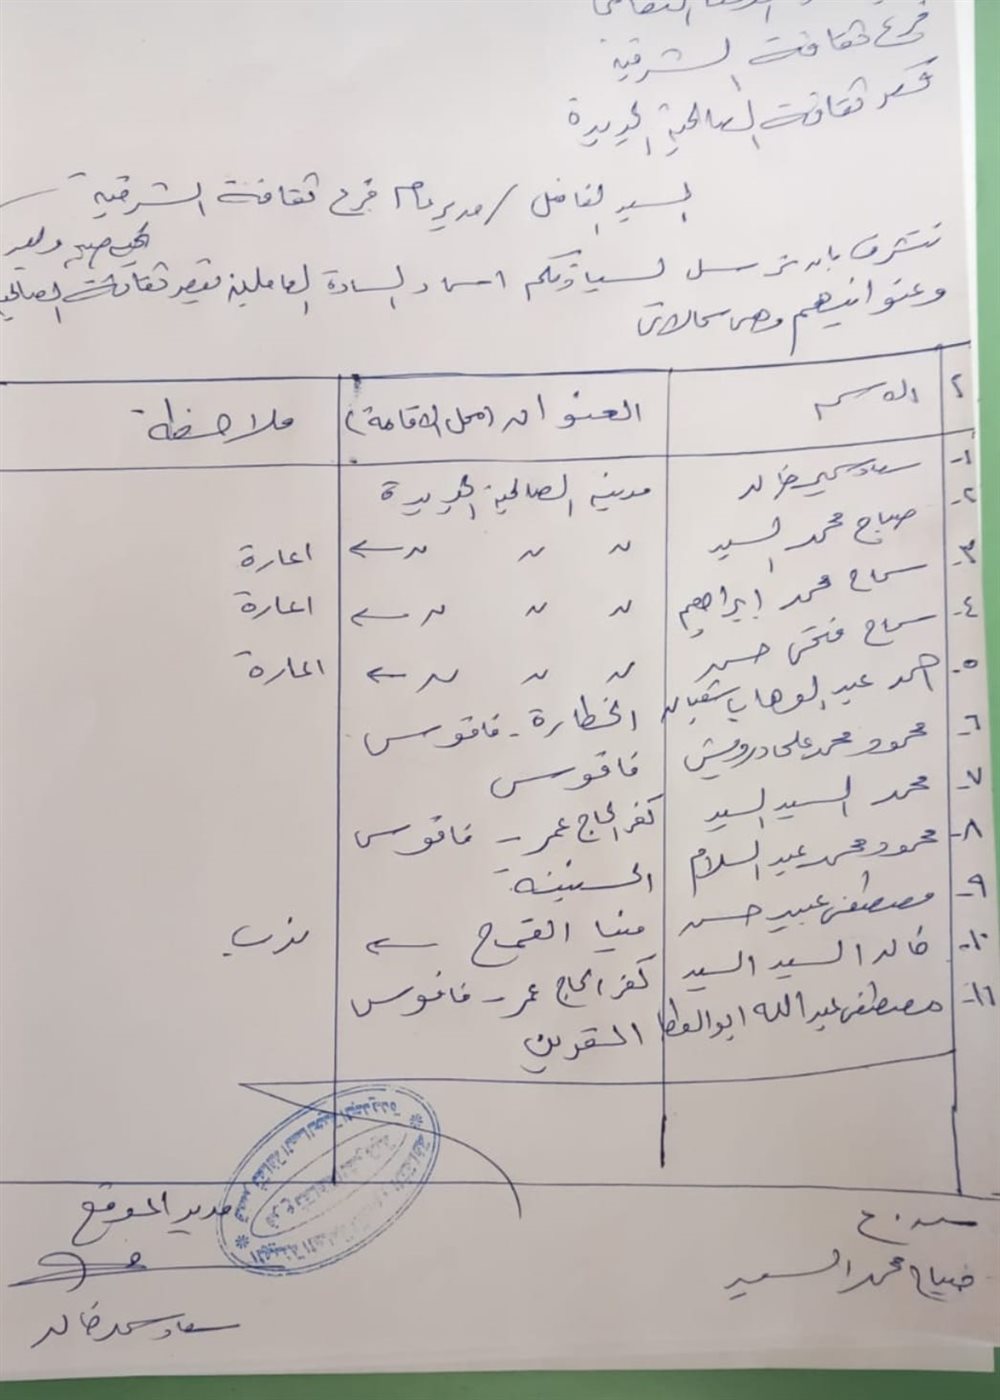 فرع ثقافة الشرقية
قصر ثقافة الصالحية الجديدة
السيد الفاضل / مدير عام فرع ثقافة الشرقية
نتشرف بان نرسل لسيادتكم اسماء السادة العاملين بقصر ثقافة الصالحية
وعنوانيهم وهى كالاتى
م الاسم العنوان (محل الاقامة) ملاحظة
١- سعاد سمير خالد مدينة الصالحية الجديدة
٢- صباح محمد السيد " " " ← اعارة
٣- سماح محمد ابراهيم " " " ← اعارة
٤- سماح فتحى حسن " " " ← اعارة
٥- احمد عبد الوهاب شعبان الخطارة - فاقوس
٦- محمود محمد على درويش فاقوس
٧- محمد السيد السيد كفر الحاج عمر - فاقوس
٨- محمود محمد عبد السلام الحسنية
٩- مصطفى عبيد حسن منيا القمح ← ندب
١٠- خالد السيد السيد كفر الحاج عمر - فاقوس
١١- مصطفى عبد الله ابو العطا القرين
مدير الموقع
صباح محمد السيد
سعاد سمير خالد